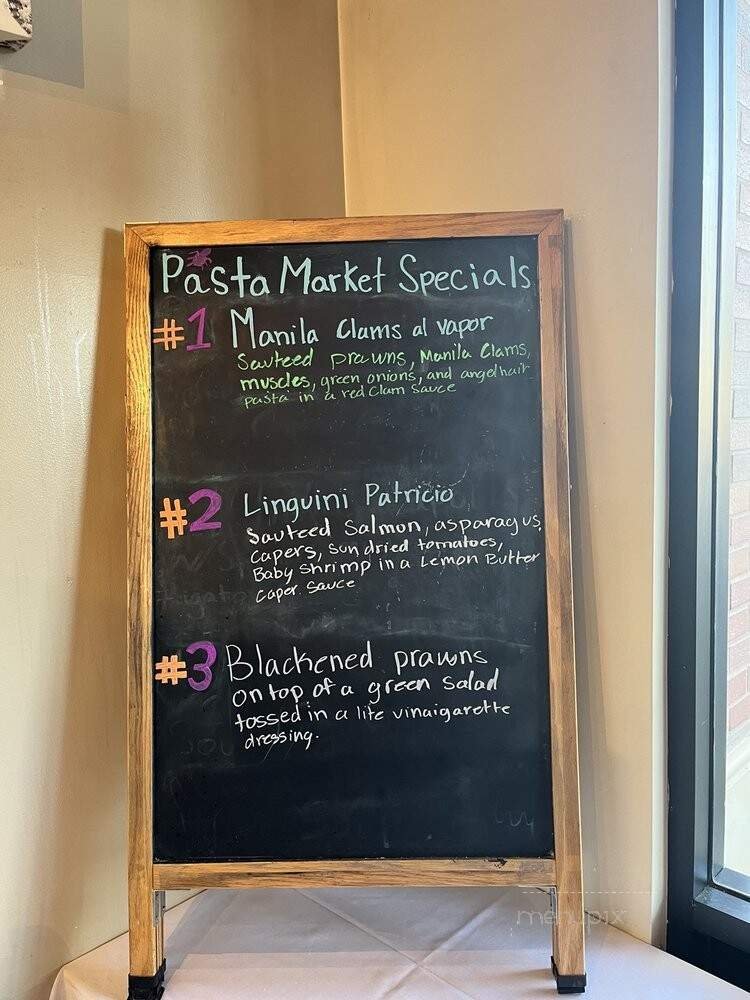 Pasta Market Specials
#1 Manila Clams al vapor
Sauteed prawns, Manila Clams,
muscles, green onions, and angelhair
pasta in a red Clam Sauce
#2 Linguini Patricio
Sauteed Salmon, asparagus,
Capers, Sun dried tomatoes,
Baby Shrimp in a Lemon Butter
Caper Sauce
#3 Blackened prawns
on top of a green Salad
tossed in a lite vinaigarette
dressing.
menupix